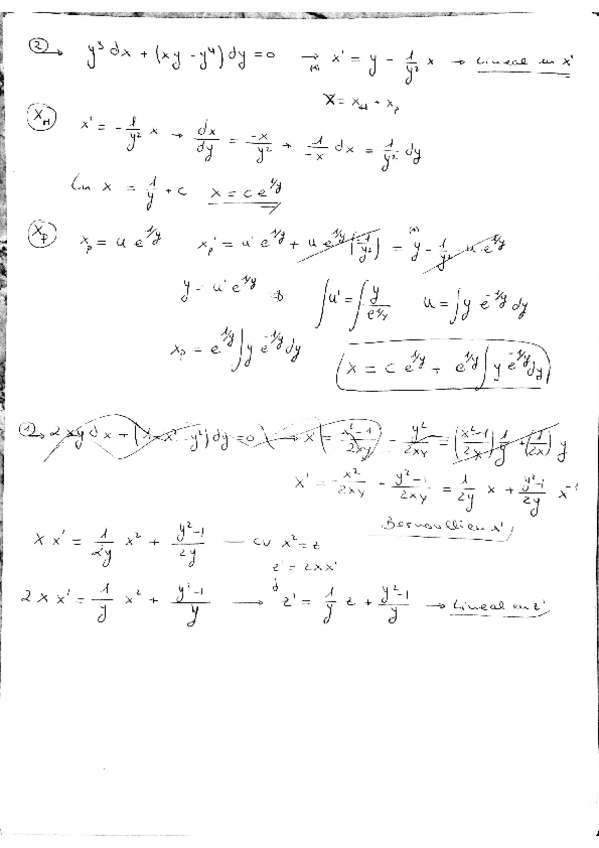 ② → y³ dx + (xy - y⁴) dy = 0 →(*) x' = y - 1/y² x → Lineal en x'
x = x_H + x_p
x_H x' = -1/y² x → dx/dy = -x/y² → 1/-x dx = 1/y² dy
ln x = 1/y + c x = c e^{1/y}
x_p x_p = u e^{1/y} x_p' = u' e^{1/y} + u e^{1/y} (-1/y²) =(*) y - 1/y² u e^{1/y}
y = u' e^{1/y} ⇒ ∫u' = ∫ y/e^{1/y} u = ∫ y e^{-1/y} dy
x_p = e^{1/y} ∫ y e^{-1/y} dy x = c e^{1/y} + e^{1/y} ∫ y e^{-1/y} dy
① → 2xy dx + (1 - x² - y²) dy = 0 → x' = x²-1/2xy - y²/2xy = (x²-1/2x) 1/y + (1/2x) y
x' = x²/2xy - y²-1/2xy = 1/2y x + y²-1/2y x⁻¹
Bernoulli en x'
x x' = 1/2y x² + y²-1/2y — CV x² = z
z' = 2xx'
2 x x' = 1/y x² + y²-1/y → z' = 1/y z + y²-1/y → Lineal en z'